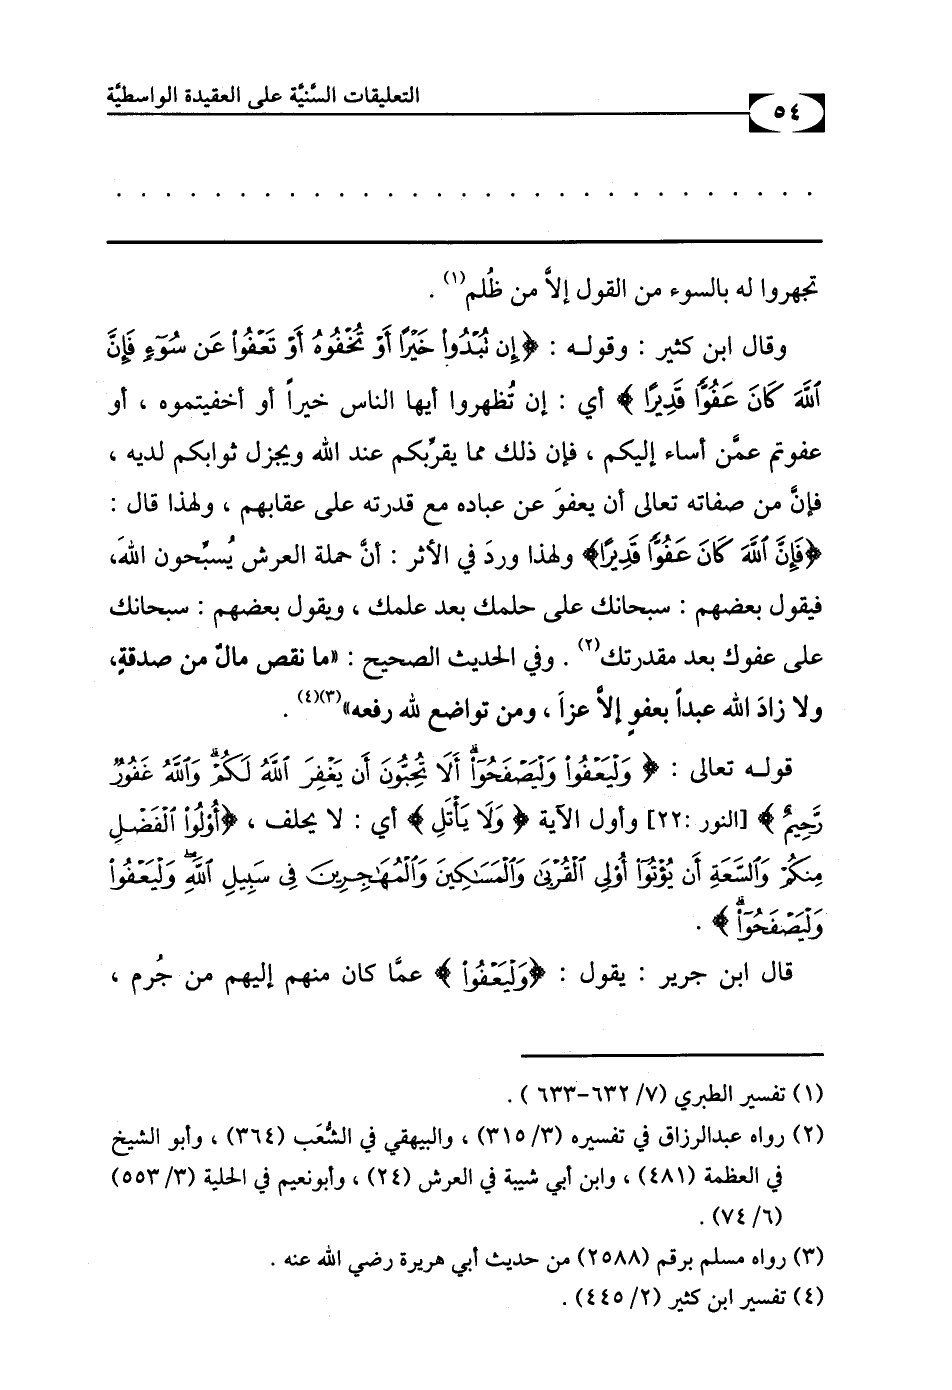 التعليقات السَّنيَّة على العقيدة الواسطيَّة
٥٤
. . . . . . . . . . . . . . . . . . . . . . . . . . . . .
تجهروا له بالسوء من القول إلاَّ من ظُلم(١) .
وقال ابن كثير : وقوله : ﴿إِن تُبۡدُواْ خَيۡرًا أَوۡ تُخۡفُوهُ أَوۡ تَعۡفُواْ عَن سُوٓءٖ فَإِنَّ
ٱللَّهَ كَانَ عَفُوّٗا قَدِيرًا ﴾ أي : إن تُظهروا أيها الناس خيراً أو أخفيتموه ، أو
عفوتم عمَّن أساء إليكم ، فإن ذلك مما يقرِّبكم عند الله ويجزل ثوابكم لديه ،
فإنَّ من صفاته تعالى أن يعفوَ عن عباده مع قدرته على عقابهم ، ولهذا قال :
﴿فَإِنَّ ٱللَّهَ كَانَ عَفُوّٗا قَدِيرًا﴾ ولهذا وردَ في الأثر : أنَّ حملة العرش يُسبِّحون اللهَ،
فيقول بعضهم : سبحانك على حلمك بعد علمك ، ويقول بعضهم : سبحانك
على عفوك بعد مقدرتك(٢) . وفي الحديث الصحيح : «ما نقص مالٌ من صدقةٍ،
ولا زادَ الله عبداً بعفوٍ إلاَّ عزاً ، ومن تواضع لله رفعه»(٣)(٤) .
قوله تعالى : ﴿ وَلۡيَعۡفُواْ وَلۡيَصۡفَحُوٓاْۗ أَلَا تُحِبُّونَ أَن يَغۡفِرَ ٱللَّهُ لَكُمۡۗ وَٱللَّهُ غَفُورٞ
رَّحِيمٌ ﴾ [النور :٢٢] وأول الآية ﴿ وَلَا يَأۡتَلِ ﴾ أي : لا يحلف ، ﴿أُوْلُواْ ٱلۡفَضۡلِ
مِنكُمۡ وَٱلسَّعَةِ أَن يُؤۡتُوٓاْ أُوْلِي ٱلۡقُرۡبَىٰ وَٱلۡمَسَٰكِينَ وَٱلۡمُهَٰجِرِينَ فِي سَبِيلِ ٱللَّهِۖ وَلۡيَعۡفُواْ
وَلۡيَصۡفَحُوٓاْۗ ﴾ .
قال ابن جرير : يقول : ﴿وَلۡيَعۡفُواْ ﴾ عمَّا كان منهم إليهم من جُرم ،
(١) تفسير الطبري (٧/ ٦٣٢-٦٣٣ ) .
(٢) رواه عبدالرزاق في تفسيره (٣/ ٣١٥) ، والبيهقي في الشُّعَب (٣٦٤) ، وأبو الشيخ
في العظمة (٤٨١) ، وابن أبي شيبة في العرش (٢٤) ، وأبونعيم في الحلية (٣/ ٥٥٣)
(٦/ ٧٤) .
(٣) رواه مسلم برقم (٢٥٨٨) من حديث أبي هريرة رضي الله عنه .
(٤) تفسير ابن كثير (٢/ ٤٤٥) .